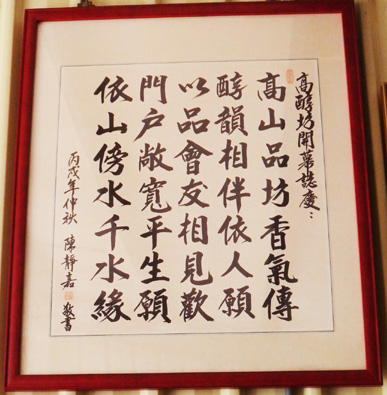 高醇坊開幕誌慶：
高山品坊香氣傳
醇韻相伴依人願
以品會友相見歡
門户敞寬平生願
依山傍水千水緣
丙戌年仲秋 陳靜嘉 敬書